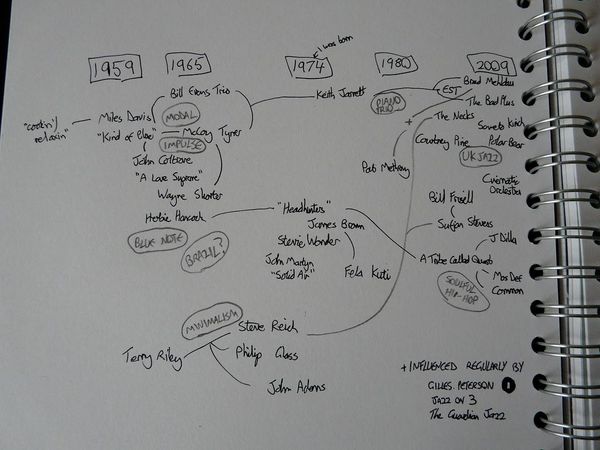 I was born
1959 1965 1974 1980 2009
Bill Evans Trio
Keith Jarrett
PIANO TRIO
EST
Brad Mehldau
The Bad Plus
"cookin'/
relaxin"
Miles Davis
MODAL
"Kind of Blue"
McCoy Tyner
IMPULSE
John Coltrane
"A Love Supreme"
Wayne Shorter
Herbie Hancock
BLUE NOTE
BRAZIL?
"Headhunters"
James Brown
Stevie Wonder
John Martyn
"Solid Air"
Fela Kuti
+
Pat Metheny
The Necks
Soweto Kinch
Courtney Pine
Polar Bear
UK JAZZ
Cinematic
Orchestra
Bill Frisell
Sufjan Stevens
J Dilla
A Tribe Called Quest
Mos Def
Common
SOULFUL
HIP-HOP
MINIMALISM
Steve Reich
Terry Riley
Philip Glass
John Adams
+ INFLUENCED REGULARLY BY
GILLES PETERSON 1
JAZZ ON 3
The Guardian Jazz